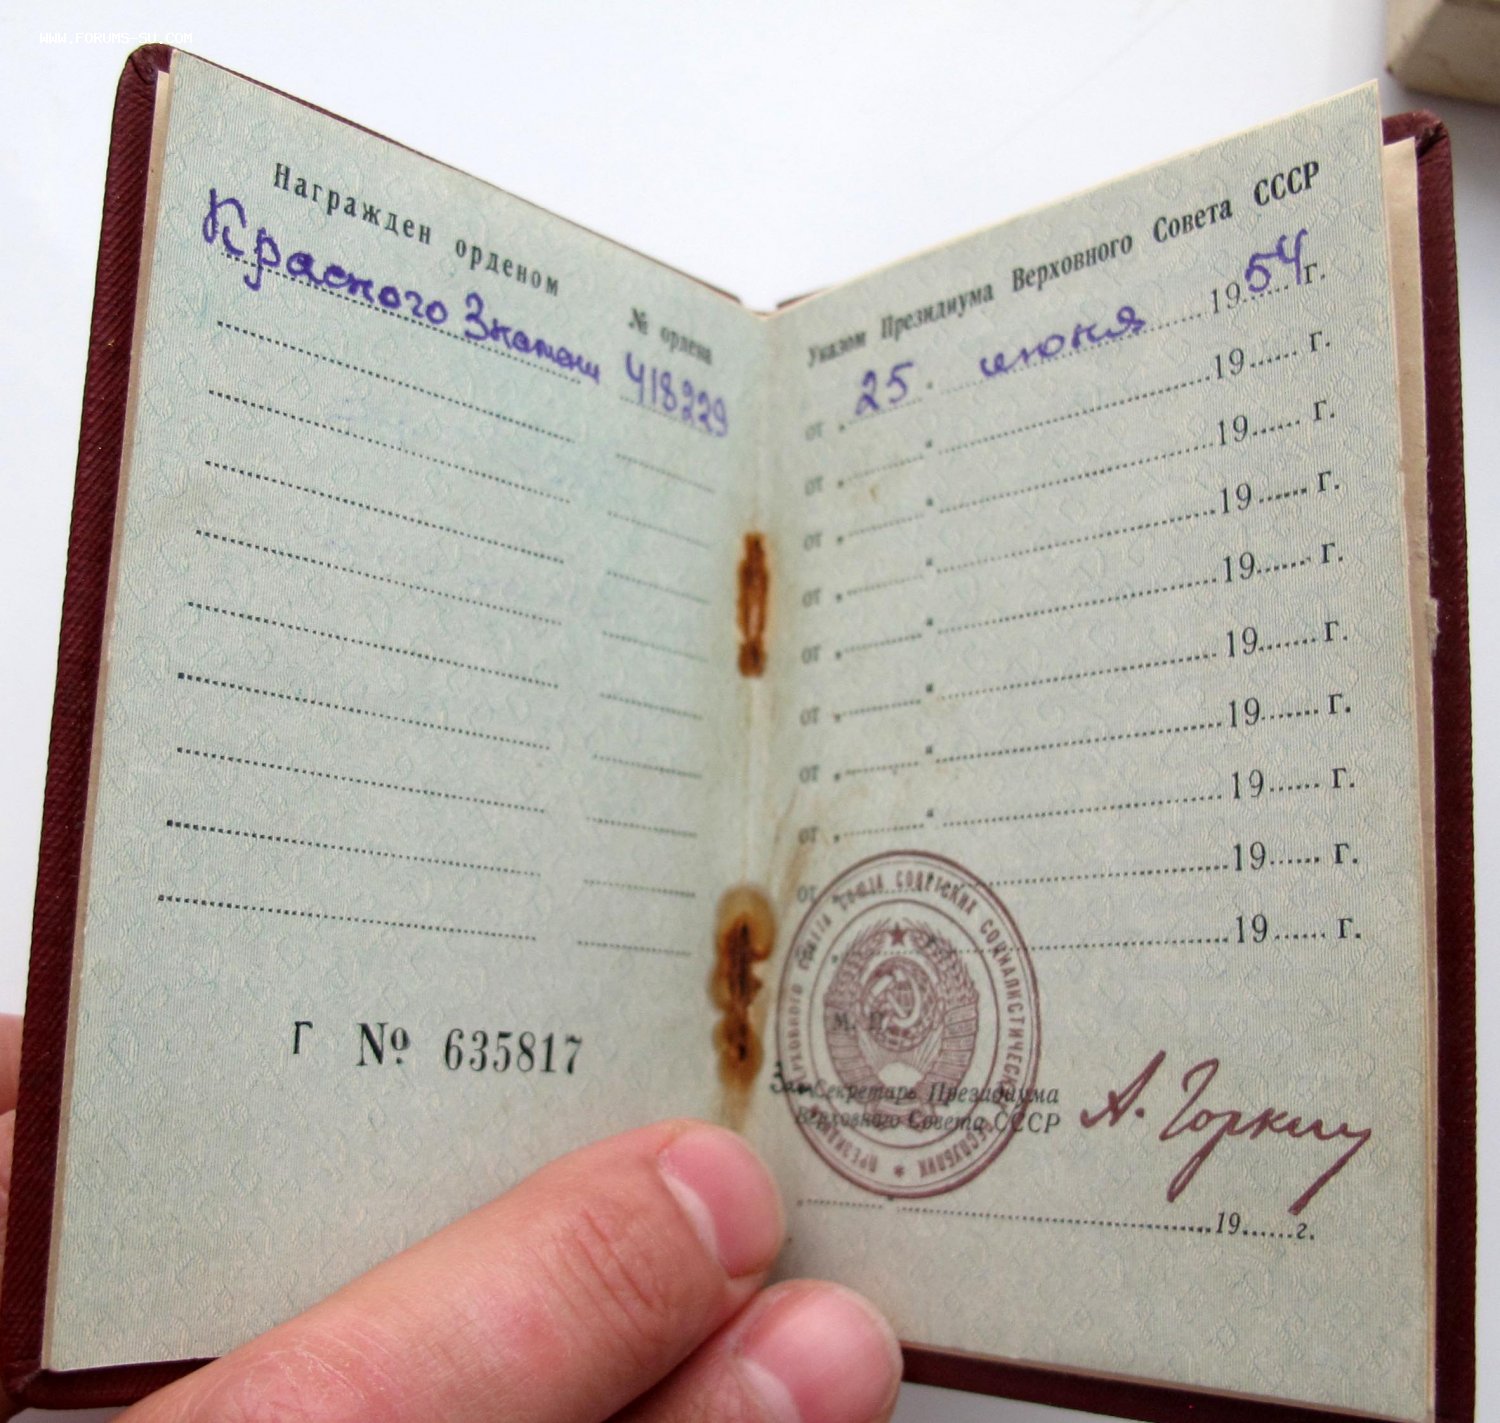 WWW.FORUMS-SU.COM
Награжден орденом
№ ордена
Красного Знамени 418229
Г № 635817
Указом Президиума Верховного Совета СССР
от „ 25 “ июня 1954 г.
от „ “ 19 г.
от „ “ 19 г.
от „ “ 19 г.
от „ “ 19 г.
от „ “ 19 г.
от „ “ 19 г.
от „ “ 19 г.
от „ “ 19 г.
„ “ 19 г.
М. П.
Зам Секретарь Президиума
Верховного Совета СССР
А. Горкин
„ “ 19 г.
ПРЕЗИДИУМ ВЕРХОВНОГО СОВЕТА СОЮЗА СОВЕТСКИХ СОЦИАЛИСТИЧЕСКИХ РЕСПУБЛИК